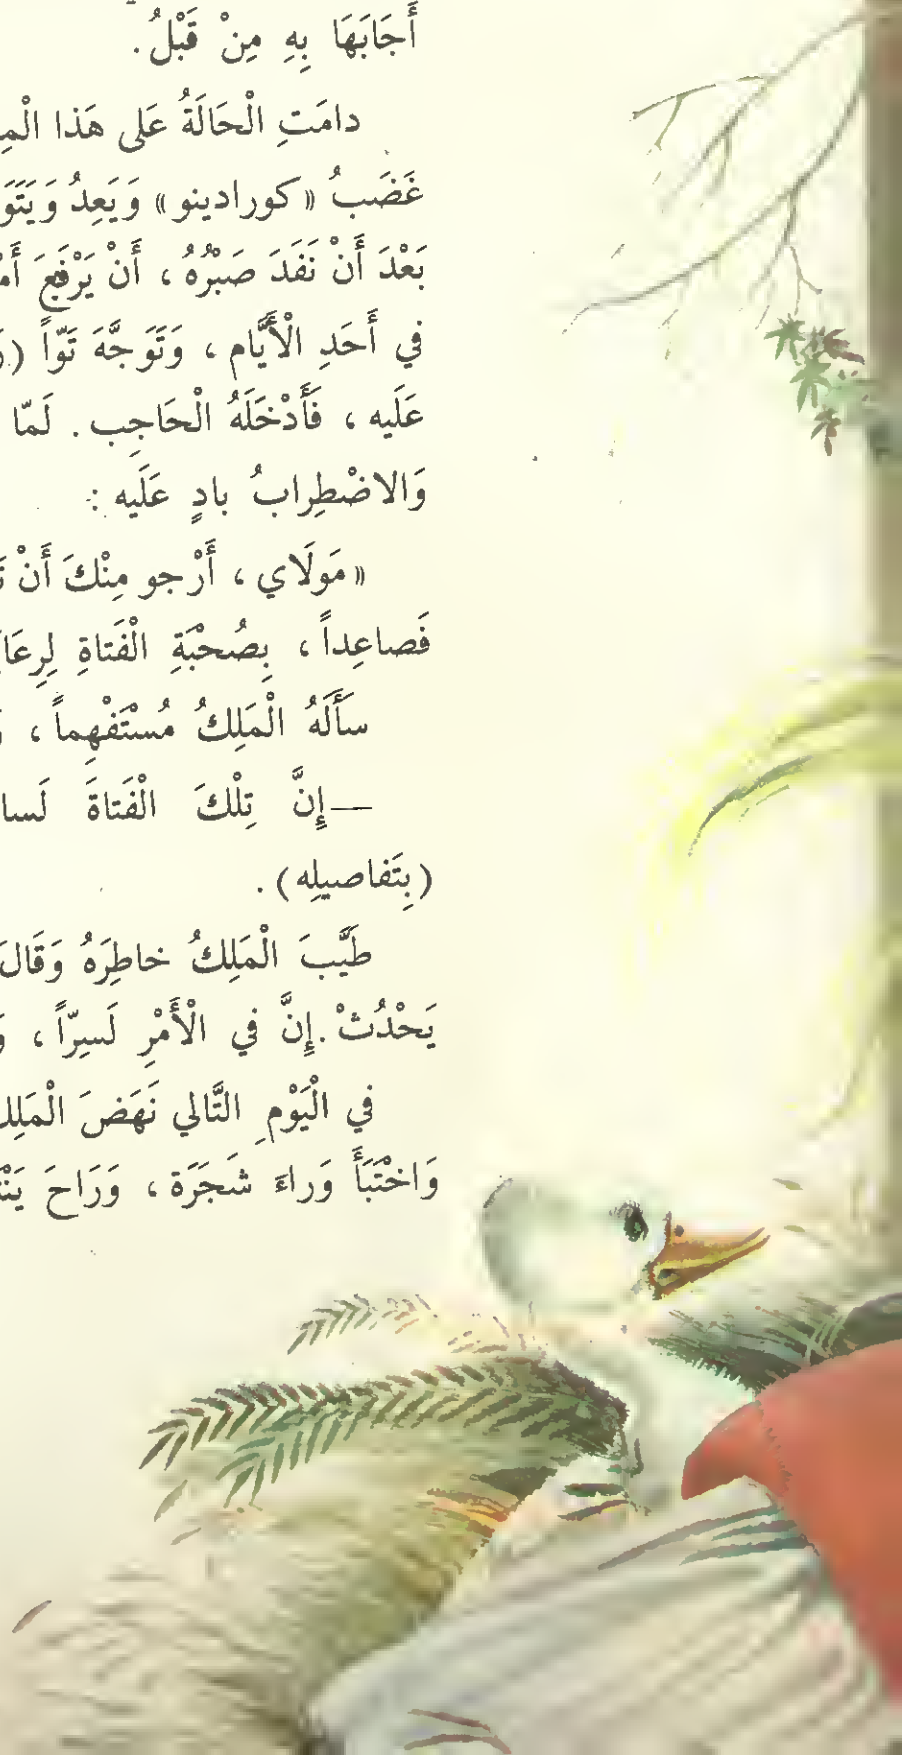 أَجَابَهَا بِهِ مِنْ قَبْلُ.
دامَتِ الْحَالَةُ عَلى هَذا
غَضَبُ «كورادينو» وَيَعِدُ
بَعْدَ أَنْ نَفَدَ صَبْرُهُ، أَنْ يَرْفَعَ
في أَحَدِ الْأَيَّام، وَتَوَجَّهَ تَوّاً
عَلَيه، فَأَدْخَلَهُ الْحَاجِب. لَمّا
وَالاضْطِرابُ بادٍ عَلَيه:
«مَولَاي، أَرْجو مِنْكَ أَنْ
فَصاعِداً، بِصُحْبَةِ الْفَتاةِ
سَأَلَهُ الْمَلِكُ مُسْتَفْهِماً،
—إِنَّ تِلْكَ الْفَتاةَ
(بِتَفاصيلِه).
طَيَّبَ الْمَلِكُ خاطِرَهُ وَقَالَ
يَحْدُثْ. إِنَّ في الْأَمْرِ لَسِرّاً،
في الْيَوْمِ التَّالي نَهَضَ الْمَلِك
وَاخْتَبَأَ وَراءَ شَجَرَة، وَرَاحَ